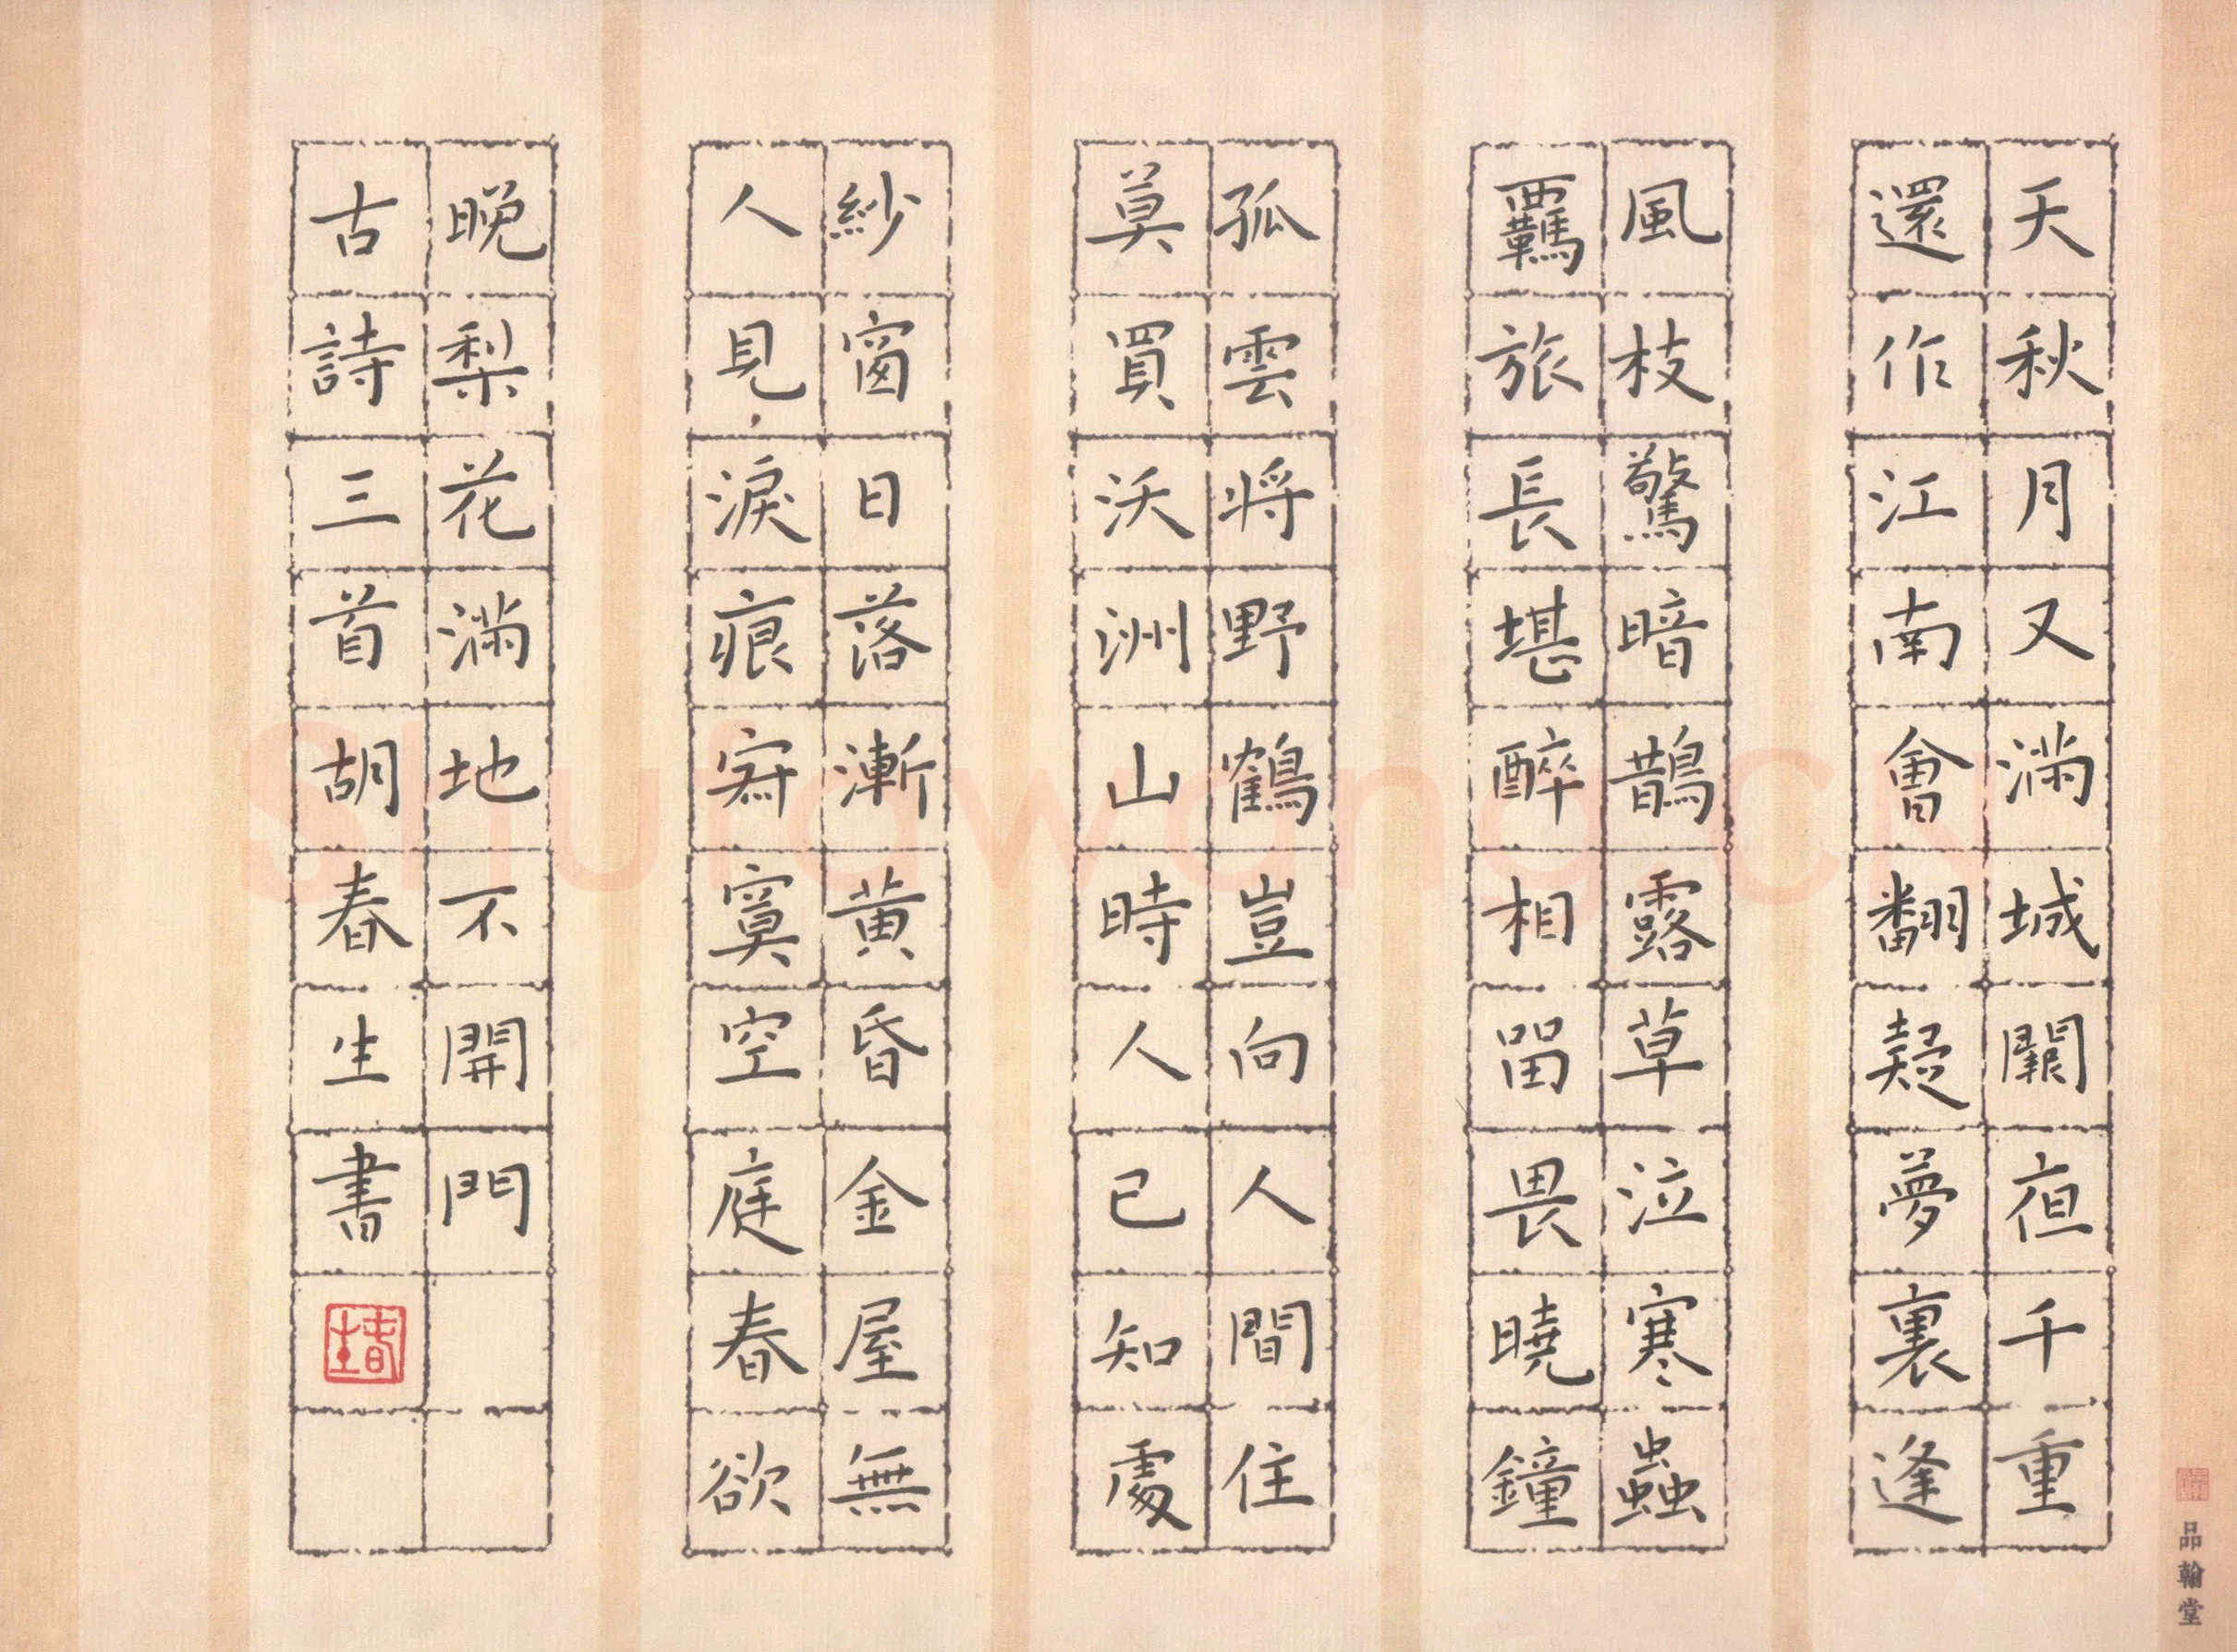 天秋月又滿城闕夜千重
還作江南會翻疑夢裏逢
風枝驚暗鵲露草泣寒蟲
覊旅長堪醉相留畏曉鐘
孤雲将野鶴豈向人間住
莫買沃洲山時人已知處
紗窗日落漸黃昏金屋無
人見淚痕寂寞空庭春欲
晚梨花滿地不開門
古詩三首胡春生書
春生
品翰堂